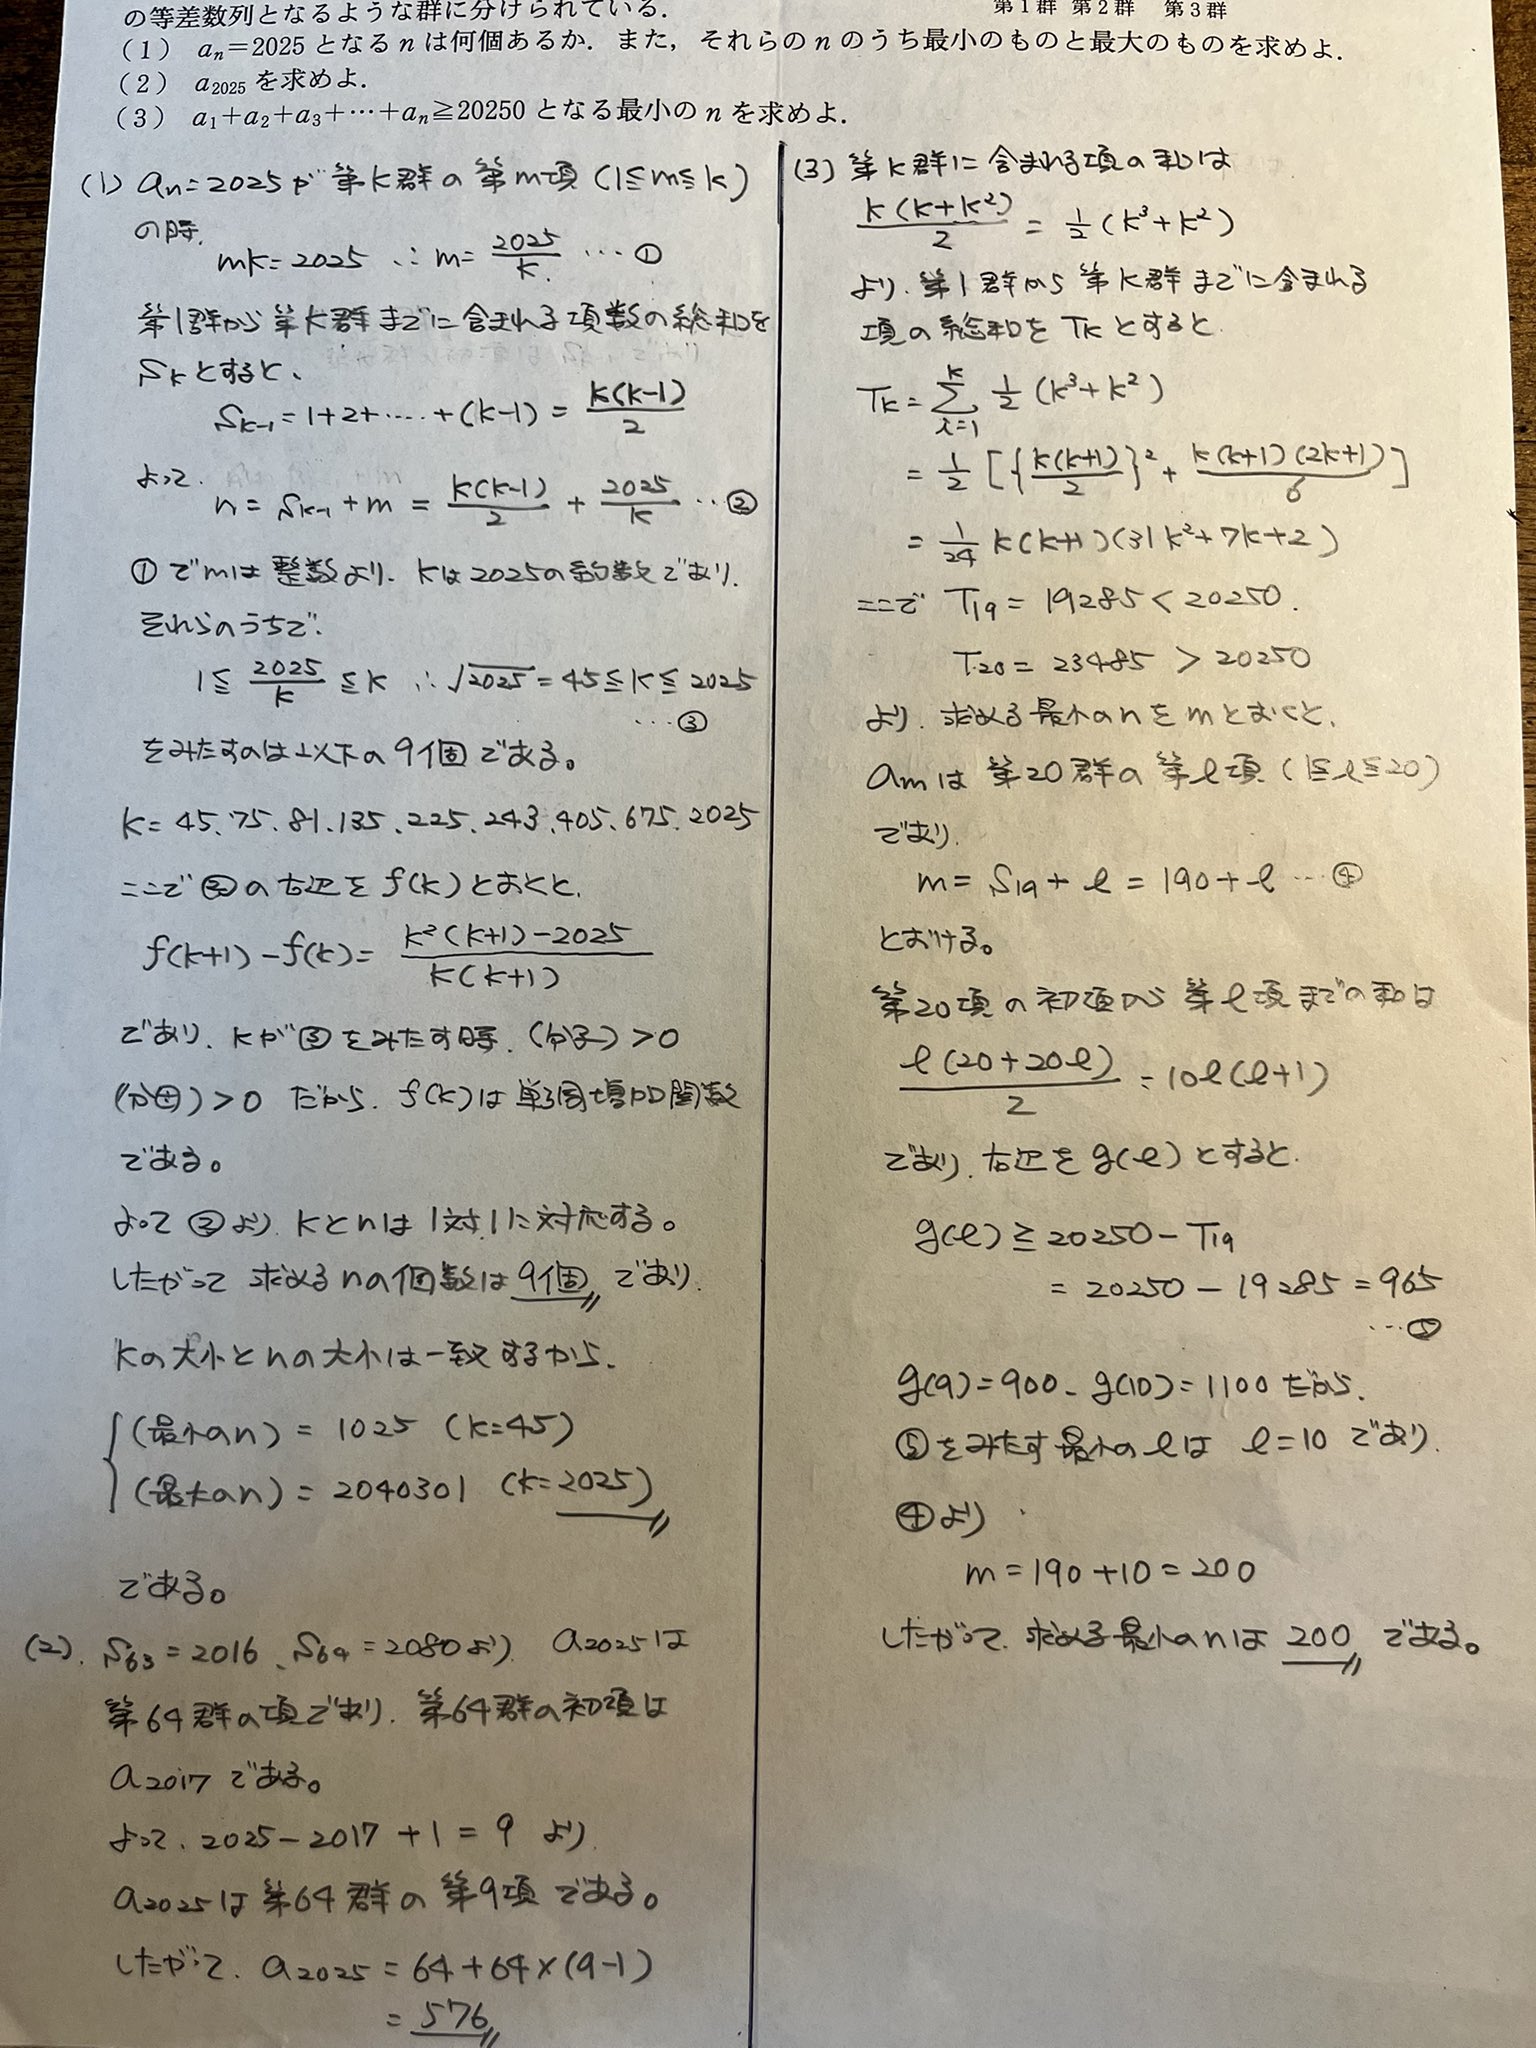 の等差数列となるような群に分けられている．
第1群 第2群 第3群
(1) aₙ=2025 となる n は何個あるか．また，それらの n のうち最小のものと最大のものを求めよ．
(2) a₂₀₂₅ を求めよ．
(3) a₁+a₂+a₃+…+aₙ≧20250 となる最小の n を求めよ．
(1) aₙ=2025が 第k群の第m項 (1≦m≦k)
の時,
mk=2025 ∴ m= 2025/k …①
第1群から第k群までに含まれる項数の総和を
Sₖとすると、
Sₖ₋₁=1+2+……+(k-1) = k(k-1)/2
よって,
n = Sₖ₋₁+m = k(k-1)/2 + 2025/k …②
①でmは整数より, kは2025の約数であり,
それらのうちで,
1≦ 2025/k ≦k ∴ √2025=45≦k≦2025
…③
をみたすのは以下の9個である。
k= 45, 75, 81, 135, 225, 243, 405, 675, 2025
ここで②の右辺をf(k)とおくと,
f(k+1)-f(k)= {k²(k+1)-2025}/{k(k+1)}
であり, kが③をみたす時, (分子)>0
(分母)>0 だから, f(k)は単調増加関数
である。
よって②より, kとnは1対1に対応する。
したがって 求めるnの個数は9個であり,
kの大小とnの大小は一致するから,
(最小のn) = 1025 (k=45)
(最大のn) = 2040301 (k=2025)
である。
(2). S₆₃=2016、S₆₄=2080より, a₂₀₂₅は
第64群の項であり, 第64群の初項は
a₂₀₁₇である。
よって, 2025-2017+1=9 より,
a₂₀₂₅は第64群の第9項である。
したがって, a₂₀₂₅=64+64×(9-1)
= 576
(3) 第k群に含まれる項の和は
k(k+k²)/2 = 1/2(k³+k²)
より, 第1群から第k群までに含まれる
項の総和をTₖとすると,
Tₖ= Σ[i=1→k] 1/2(k³+k²)
= 1/2[{k(k+1)/2}² + k(k+1)(2k+1)/6]
= 1/24 k(k+1)(31k²+7k+2)
ここで T₁₉=19285<20250.
T₂₀=23485>20250
より, 求める最小のnをmとおくと,
aₘは 第20群の第ℓ項 (1≦ℓ≦20)
であり,
m= S₁₉+ℓ = 190+ℓ …④
とおける。
第20項の初項から第ℓ項までの和は
ℓ(20+20ℓ)/2 = 10ℓ(ℓ+1)
であり, 右辺をg(ℓ)とすると,
g(ℓ)≧20250-T₁₉
= 20250-19285=965
…⑤
g(9)=900、g(10)=1100だから,
⑤をみたす最小のℓは ℓ=10であり,
④より
m=190+10=200
したがって, 求める最小のnは 200 である。